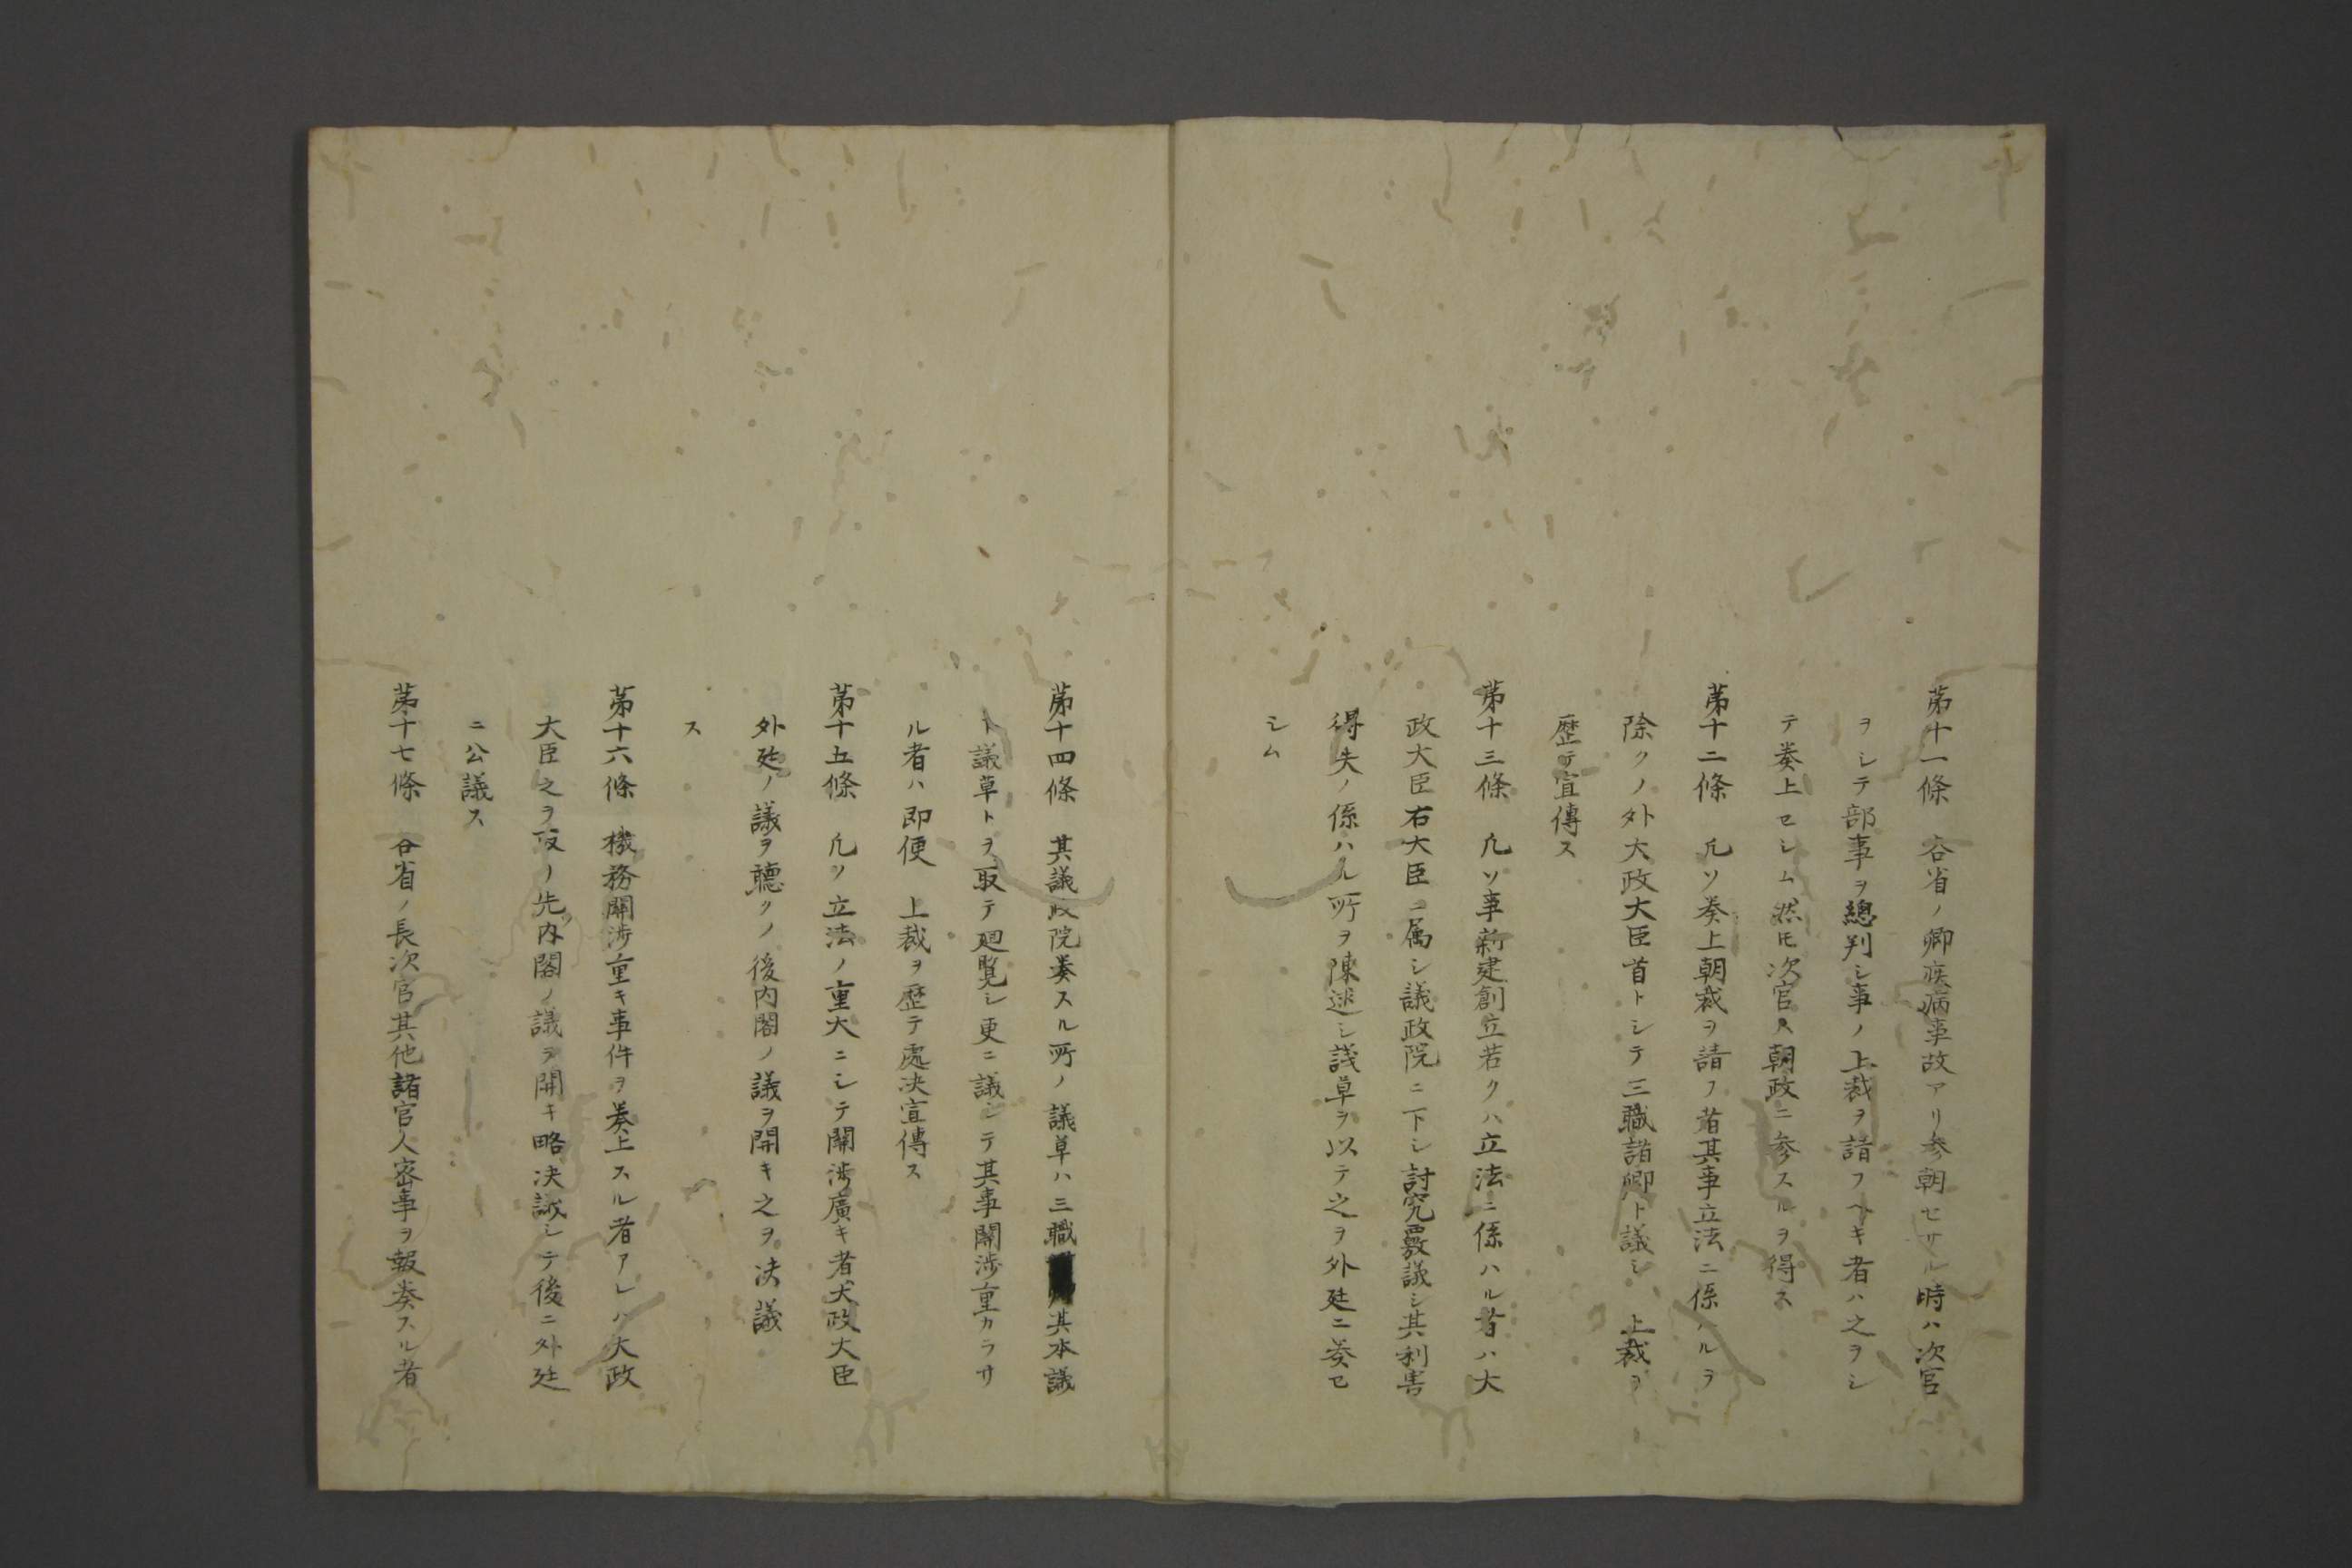 第十一條　各省ノ卿疾病事故アリ参朝セサル時ハ次官
ヲシテ部事ヲ總判シ事ノ上裁ヲ請フヘキ者ハ之ヲシ
テ奏上セシム然𪜈次官ハ朝政ニ参スルヲ得ス
第十二條　凡ソ奏上朝裁ヲ請フ者其事立法ニ係ハルヲ
除クノ外大政大臣首トシテ三職諸卿ト議シ　上裁ヲ
歴テ宣傳ス
第十三條　凡ソ事新建創立若クハ立法ニ係ハル者ハ大
政大臣右大臣ニ属シ議政院ニ下シ討究覈議シ其利害
得失ノ係ハル所ヲ陳述シ議草ヲ以テ之ヲ外廷ニ奏セ
シム
第十四條　其議政院奏スル所ノ議草ハ三職其本議
ト議草トヲ取テ廻覧シ更ニ議シテ其事關渉重カラサ
ル者ハ即便　上裁ヲ歴テ處决宣傳ス
第十五條　凡ソ立法ノ重大ニシテ關渉廣キ者大政大臣
外廷ノ議ヲ聴クノ後内閣ノ議ヲ開キ之ヲ决議
ス
第十六條　機務關渉重キ事件ヲ奏上スル者アレハ大政
大臣之ヲ取リ先ツ内閣ノ議ヲ開キ略决議シテ後ニ外廷
ニ公議ス
第十七條　各省ノ長次官其他諸官人密事ヲ報奏スル者